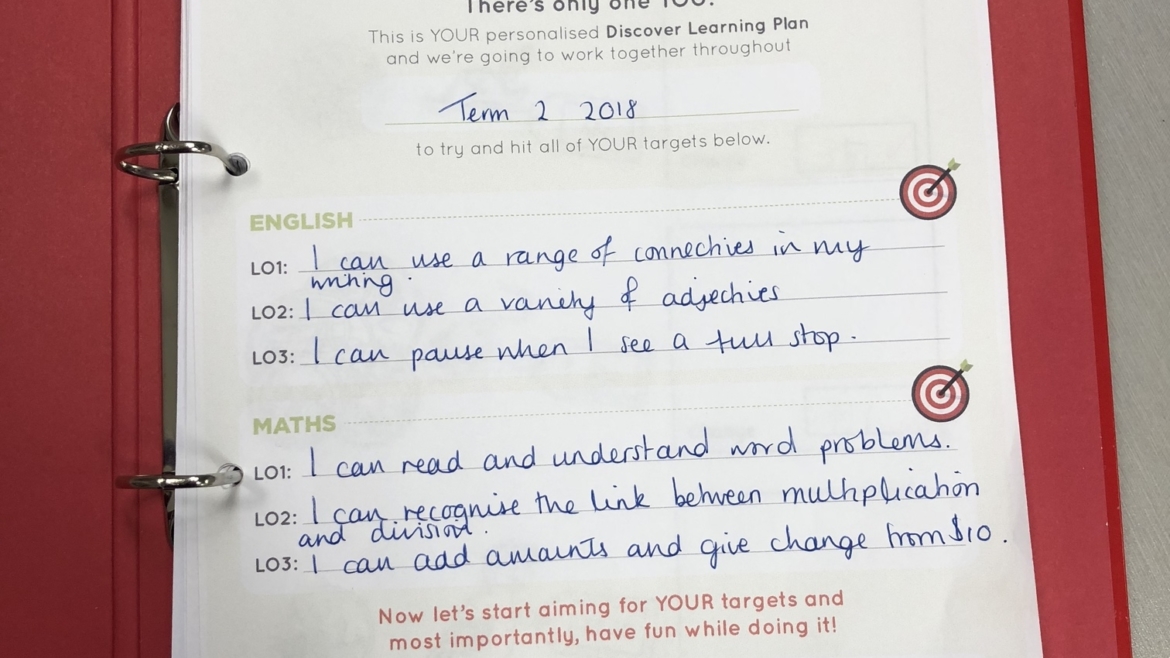 There's only one YOU!
This is YOUR personalised Discover Learning Plan
and we're going to work together throughout
Term 2 2018
to try and hit all of YOUR targets below.
ENGLISH
LO1: I can use a range of connectives in my
writing.
LO2: I can use a variety of adjectives
LO3: I can pause when I see a full stop.
MATHS
LO1: I can read and understand word problems.
LO2: I can recognise the link between multiplication
and division.
LO3: I can add amounts and give change from $10.
Now let's start aiming for YOUR targets and
most importantly, have fun while doing it!